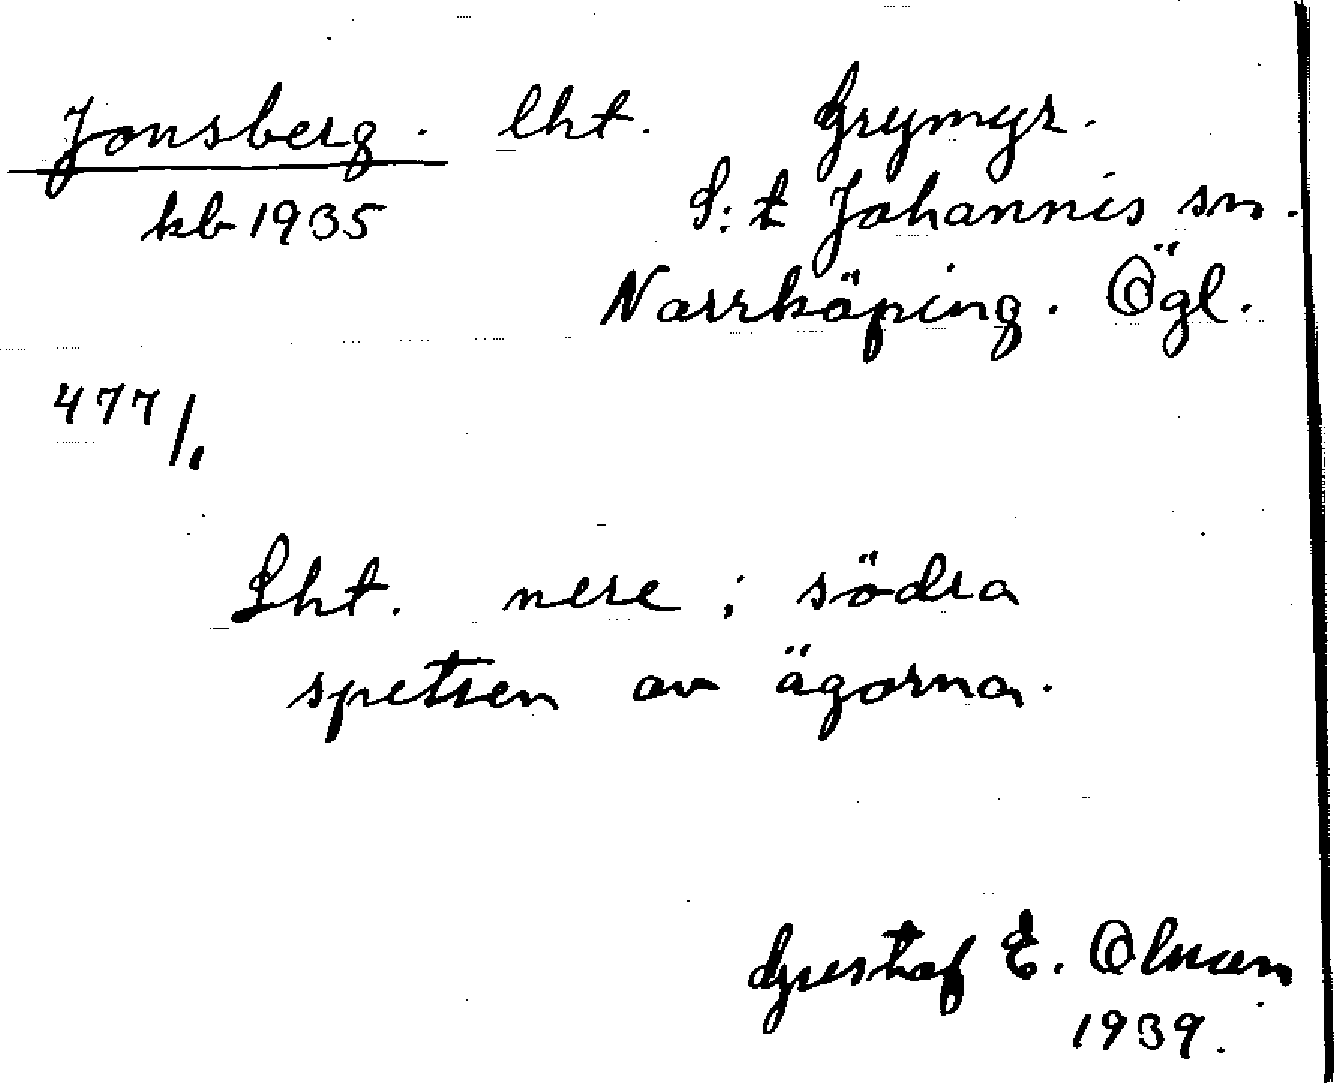 Jonsberg. lht. Grymyr.
kb 1935 S:t Johannis sn.
Norrköping. Ögl.
477/1
Lht. nere i södra
spetsen av ägorna.
Gustaf E.
1939.